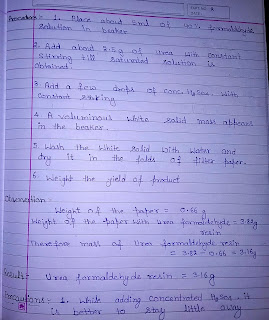 Procedure :- 1. Place about 5ml of 40% formaldehyde
solution in beaker
2. Add about 2.5g of urea with constant
stirring till saturated solution is
obtained.
3. Add a few drops of conc. H2SO4 with
constant shaking
4. A voluminous white solid mass appears
in the beaker.
5. Wash the white solid with water and
dry it in the folds of filter paper.
6. Weight the yield of product
Observation :
Weight of the paper = 0.66 g
Weight of the paper with urea formaldehyde = 3.82g
resin
Therefore mass of Urea formaldehyde resin
= 3.82 - 0.66 = 3.16g
Result :- Urea formaldehyde resin = 3.16g
Precautions :- 1. While adding concentrated H2SO4, it
is better to stay little away